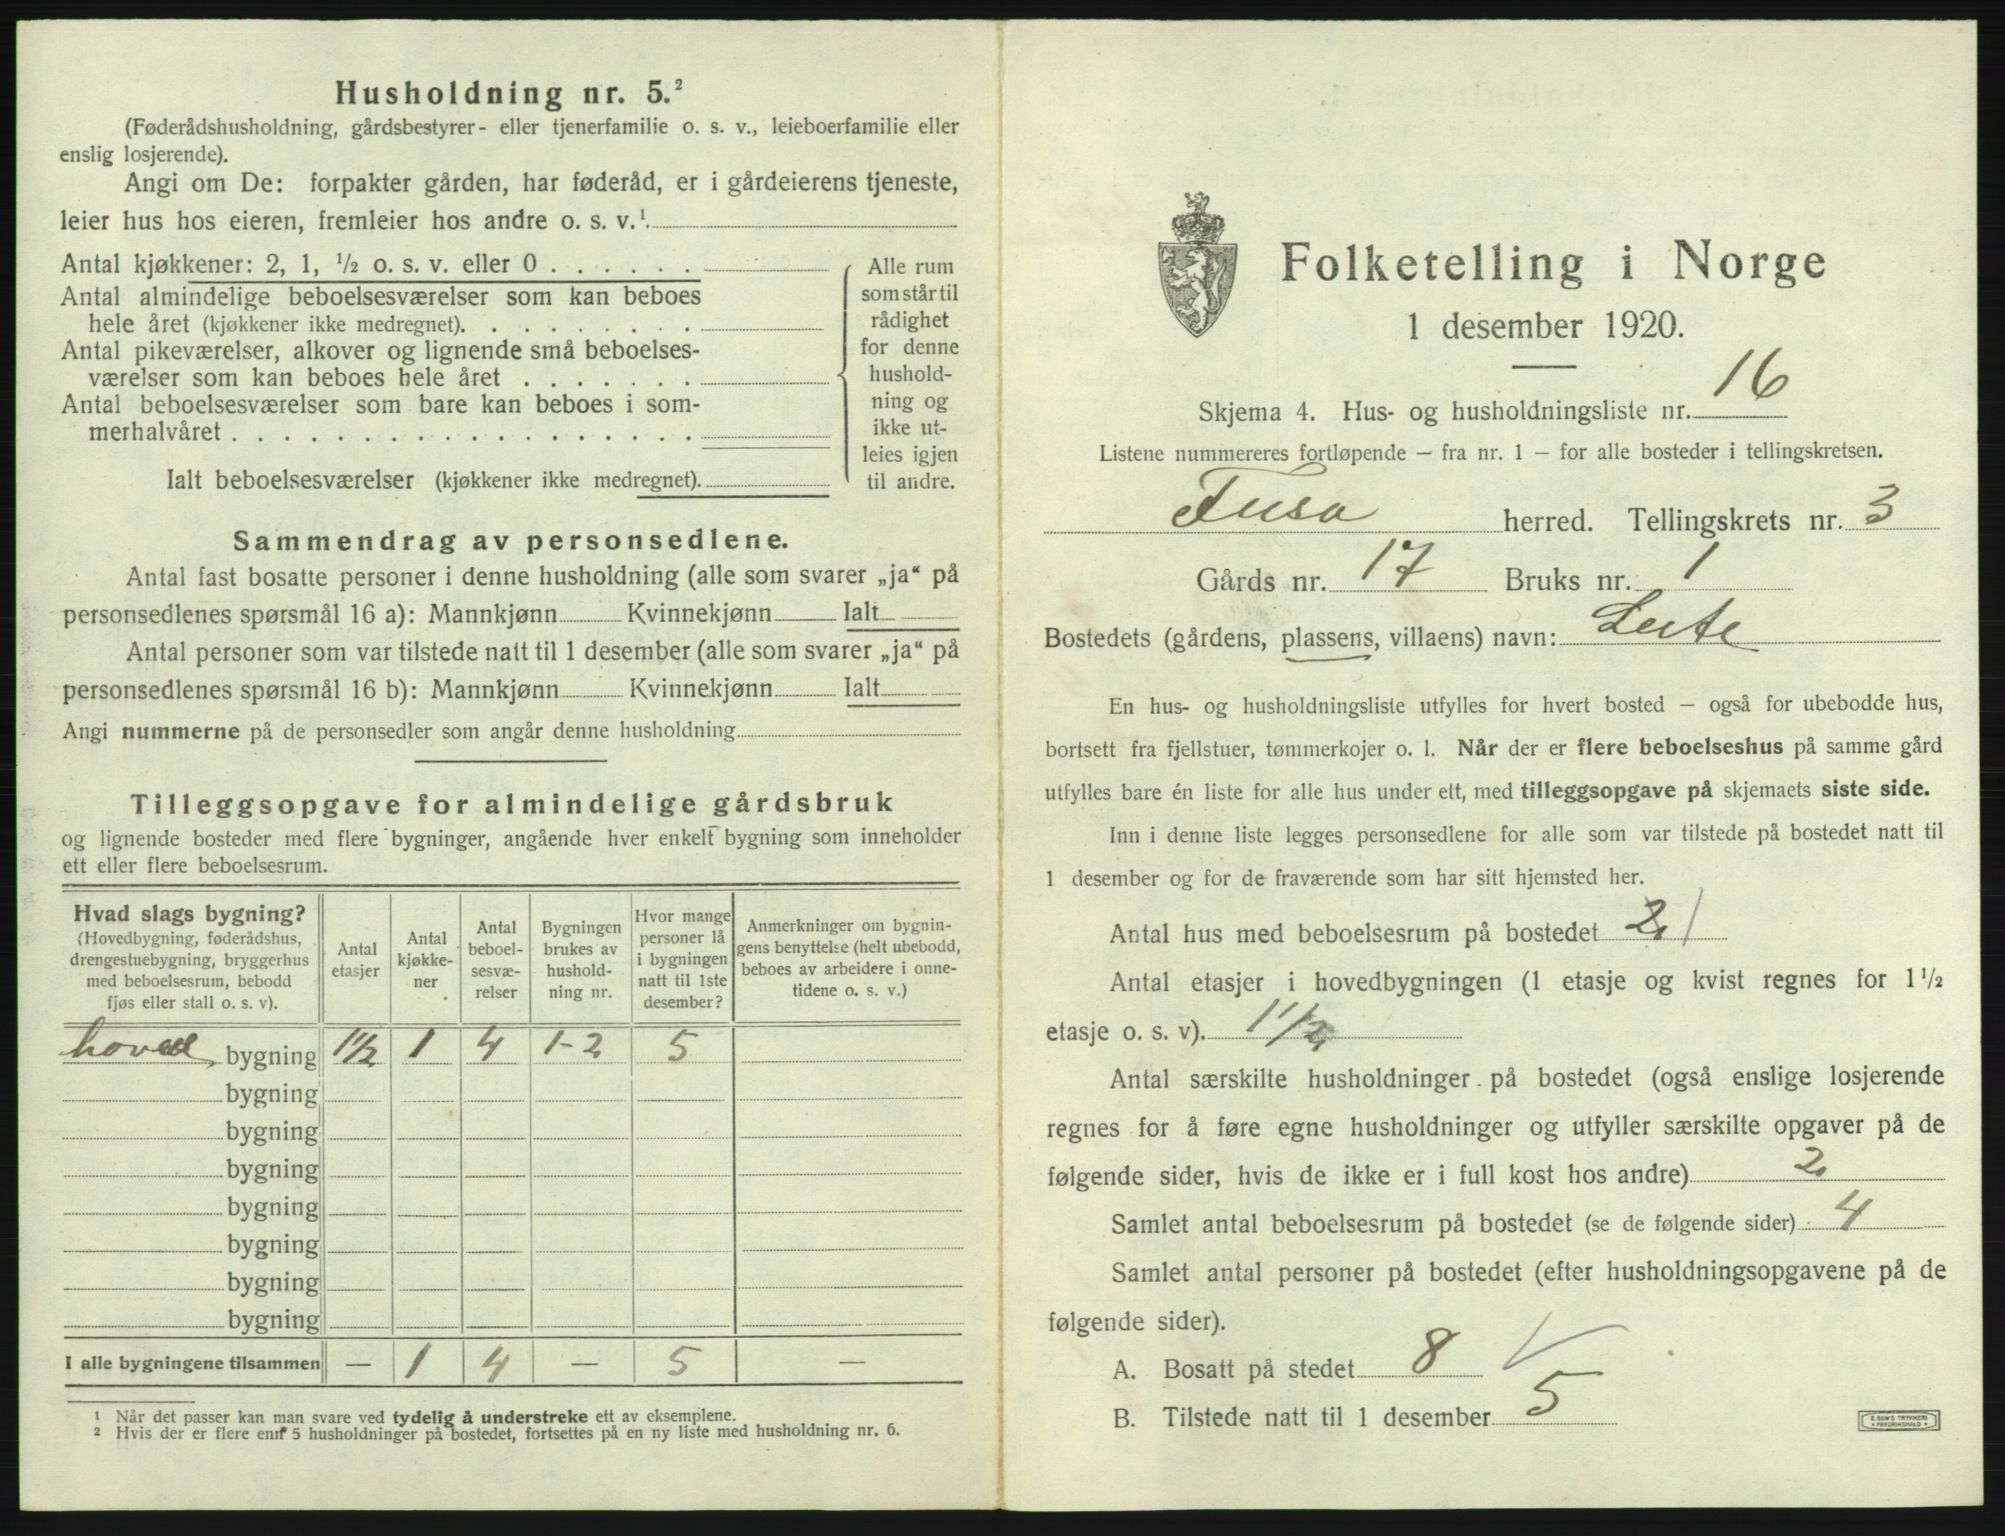 Husholdning nr. 5.²
(Føderådshusholdning, gårdsbestyrer- eller tjenerfamilie o. s. v., leieboerfamilie eller
enslig losjerende).
Angi om De: forpakter gården, har føderåd, er i gårdeierens tjeneste,
leier hus hos eieren, fremleier hos andre o. s. v.¹.
Antal kjøkkener: 2, 1, ½ o. s. v. eller 0 . . . . . .
Antal almindelige beboelsesværelser som kan beboes
hele året (kjøkkener ikke medregnet). . . . . . . . .
Antal pikeværelser, alkover og lignende små beboelses-
værelser som kan beboes hele året . . . . . . .
Antal beboelsesværelser som bare kan beboes i som-
merhalvåret . . . . . . . . . . . . . . . . . .
Alle rum
som står til
rådighet
for denne
hushold-
ning og
ikke ut-
leies igjen
til andre.
Ialt beboelsesværelser (kjøkkener ikke medregnet).
Sammendrag av personsedlene.
Antal fast bosatte personer i denne husholdning (alle som svarer „ja“ på
personsedlenes spørsmål 16 a): Mannkjønn Kvinnekjønn Ialt
Antal personer som var tilstede natt til 1 desember (alle som svarer „ja“ på
personsedlenes spørsmål 16 b): Mannkjønn Kvinnekjønn Ialt
Angi nummerne på de personsedler som angår denne husholdning
Tilleggsopgave for almindelige gårdsbruk
og lignende bosteder med flere bygninger, angående hver enkelt bygning som inneholder
ett eller flere beboelsesrum.
Hvad slags bygning?
(Hovedbygning, føderådshus,
drengestuebygning, bryggerhus
med beboelsesrum, bebodd
fjøs eller stall o. s. v).
Antal
etasjer
Antal
kjøkke-
ner
Antal
beboel-
sesvæ-
relser
Bygningen
brukes av
hushold-
ning nr.
Hvor mange
personer lå
i bygningen
natt til 1ste
desember?
Anmerkninger om bygnin-
gens benyttelse (helt ubebodd,
beboes av arbeidere i onne-
tidene o. s. v.)
hoved bygning 1½ 1 4 1-2 5
bygning
bygning
bygning
bygning
bygning
bygning
bygning
I alle bygningene tilsammen — 1 4 — 5 —
¹ Når det passer kan man svare ved tydelig å understreke ett av eksemplene.
² Hvis der er flere enn 5 husholdninger på bostedet, fortsettes på en ny liste med husholdning nr. 6.
Folketelling i Norge
1 desember 1920.
Skjema 4. Hus- og husholdningsliste nr. 16
Listene nummereres fortløpende — fra nr. 1 — for alle bosteder i tellingskretsen.
Fusa herred. Tellingskrets nr. 3
Gårds nr. 17 Bruks nr. 1
Bostedets (gårdens, plassens, villaens) navn: Leite
En hus- og husholdningsliste utfylles for hvert bosted — også for ubebodde hus,
bortsett fra fjellstuer, tømmerkojer o. l. Når der er flere beboelseshus på samme gård
utfylles bare én liste for alle hus under ett, med tilleggsopgave på skjemaets siste side.
Inn i denne liste legges personsedlene for alle som var tilstede på bostedet natt til
1 desember og for de fraværende som har sitt hjemsted her.
Antal hus med beboelsesrum på bostedet 2 1
Antal etasjer i hovedbygningen (1 etasje og kvist regnes for 1½
etasje o. s. v). 1½
Antal særskilte husholdninger på bostedet (også enslige losjerende
regnes for å føre egne husholdninger og utfyller særskilte opgaver på de
følgende sider, hvis de ikke er i full kost hos andre) 2
Samlet antal beboelsesrum på bostedet (se de følgende sider) 4
Samlet antal personer på bostedet (efter husholdningsopgavene på de
følgende sider).
A. Bosatt på stedet 8
B. Tilstede natt til 1 desember 5
E. SEM'S TRYKKERI
FREDRIKSHALD